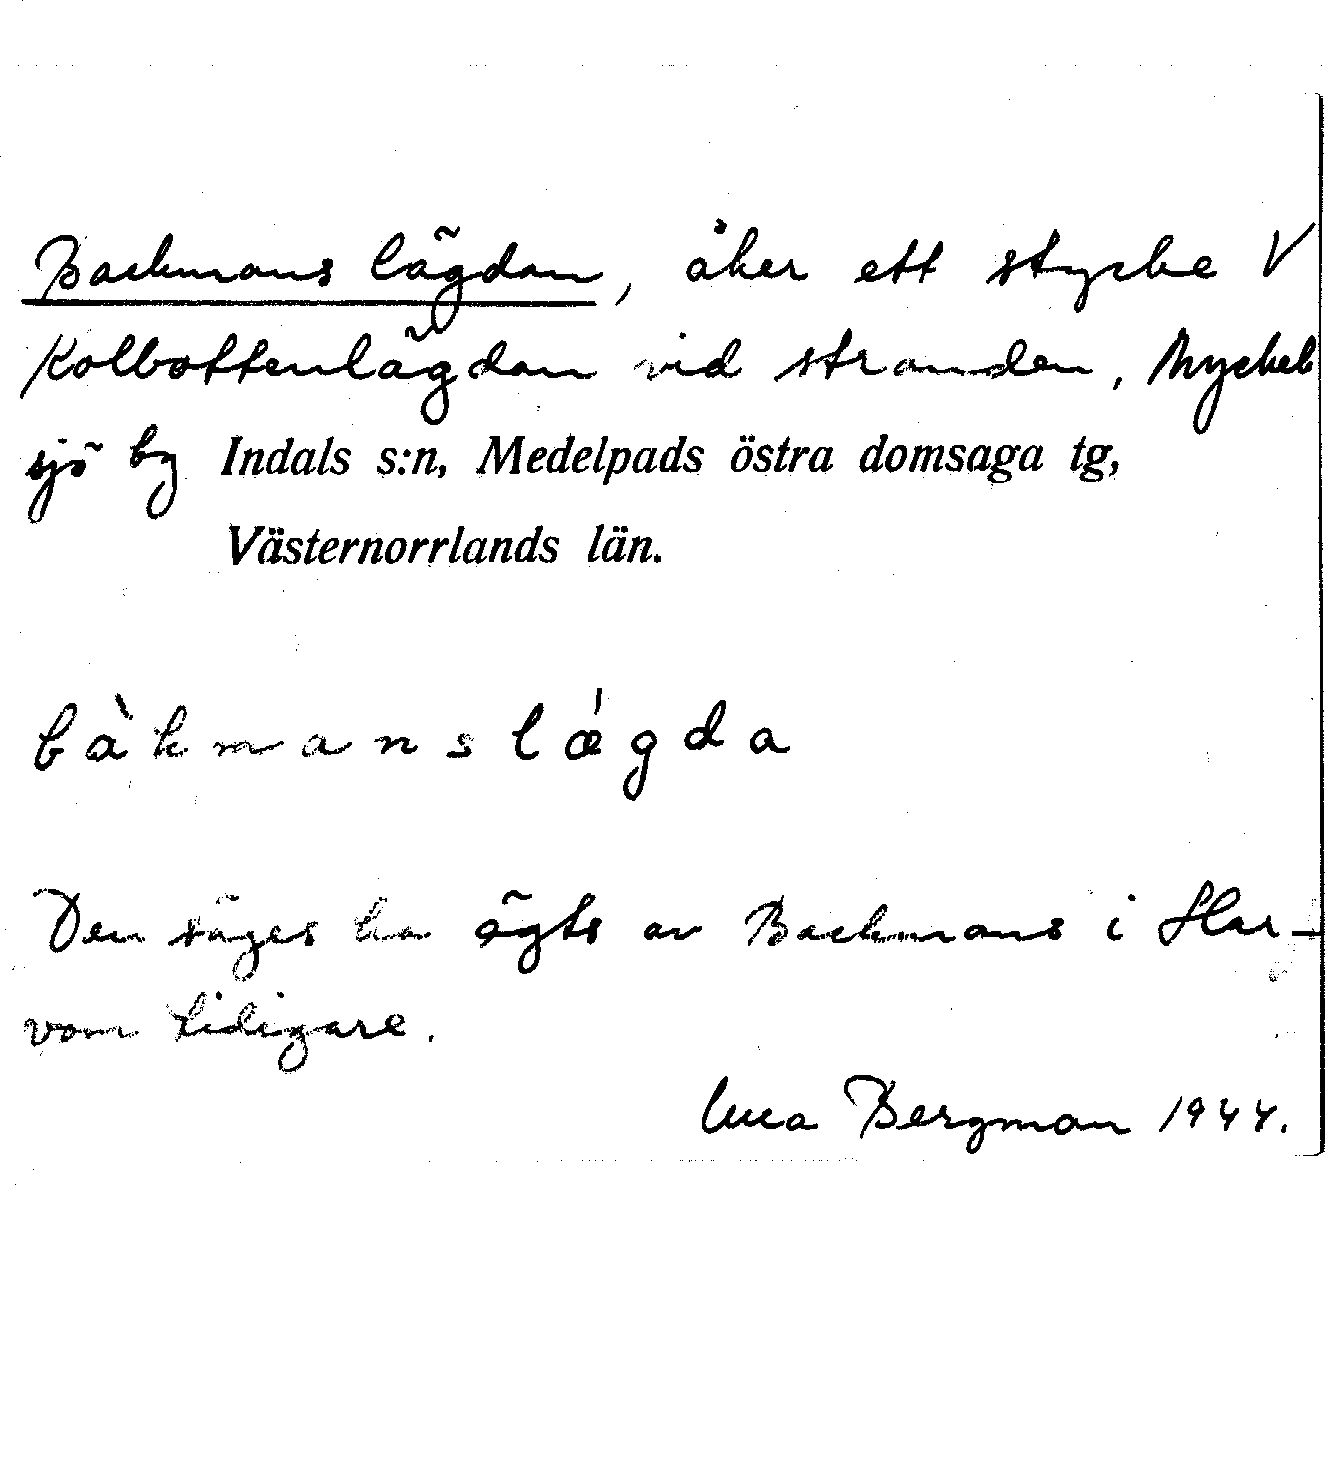 Backmans lägdan, åker ett stycke V
Kolbottenlägdan vid stranden, Myckel
sjö by Indals s:n, Medelpads östra domsaga tg,
Västernorrlands län.
bàkmanslǽgda
Den säges ha ägts av Backmans i Har-
vom tidigare.
Bergman 1944.